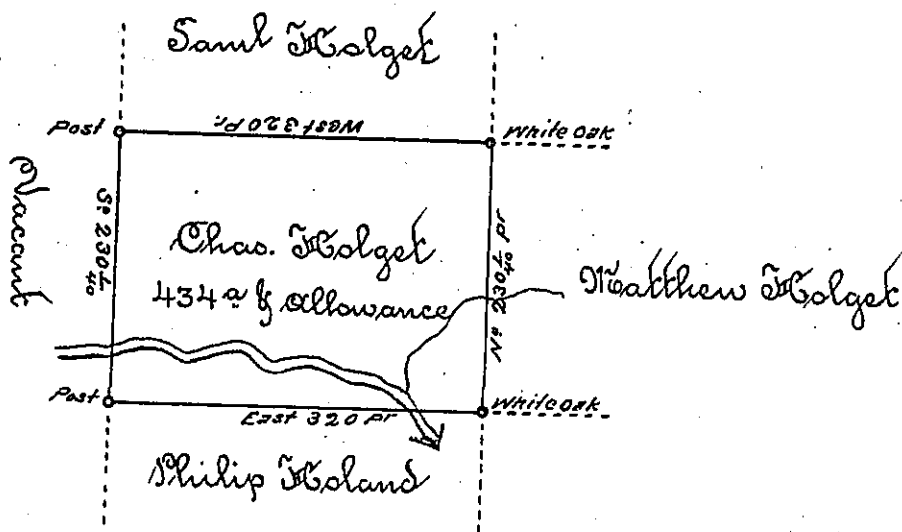 Saml Holget
Post
West 320 Pr.
White oak
Vacant
So. 230 1/40
Chas. Holget
434a & Allowance
No. 230 1/40 pr
Matthew Holget
Post
East 320 Pr
White oak
Philip Holand